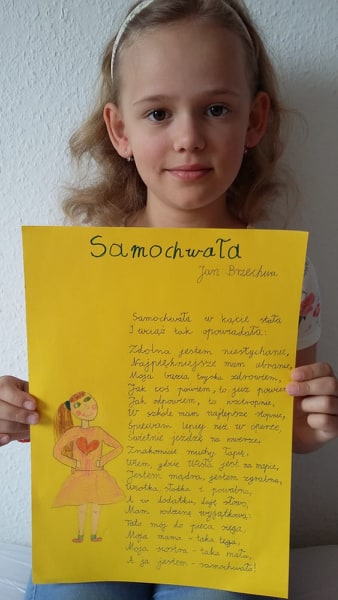 Samochwała
Jan Brzechwa
Samochwała w kącie stała
I wciąż tak opowiadała:
Zdolna jestem niesłychanie,
Najpiękniejsze mam ubranie,
Moja buzia tryska zdrowiem,
Jak coś powiem, to już powiem,
Jak odpowiem, to roztropnie,
W szkole mam najlepsze stopnie,
Śpiewam lepiej niż w operze,
Świetnie jeżdżę na rowerze,
Znakomicie muchy łapię,
Wiem, gdzie Wisła jest na mapie,
Jestem mądra, jestem zgrabna,
Wiotka, słodka i powabna,
A w dodatku, daję słowo,
Mam rodzinę wyjątkową:
Tato mój do pieca sięga,
Moja mama - taka tęga,
Moja siostra - taka mała,
A ja jestem - samochwała!